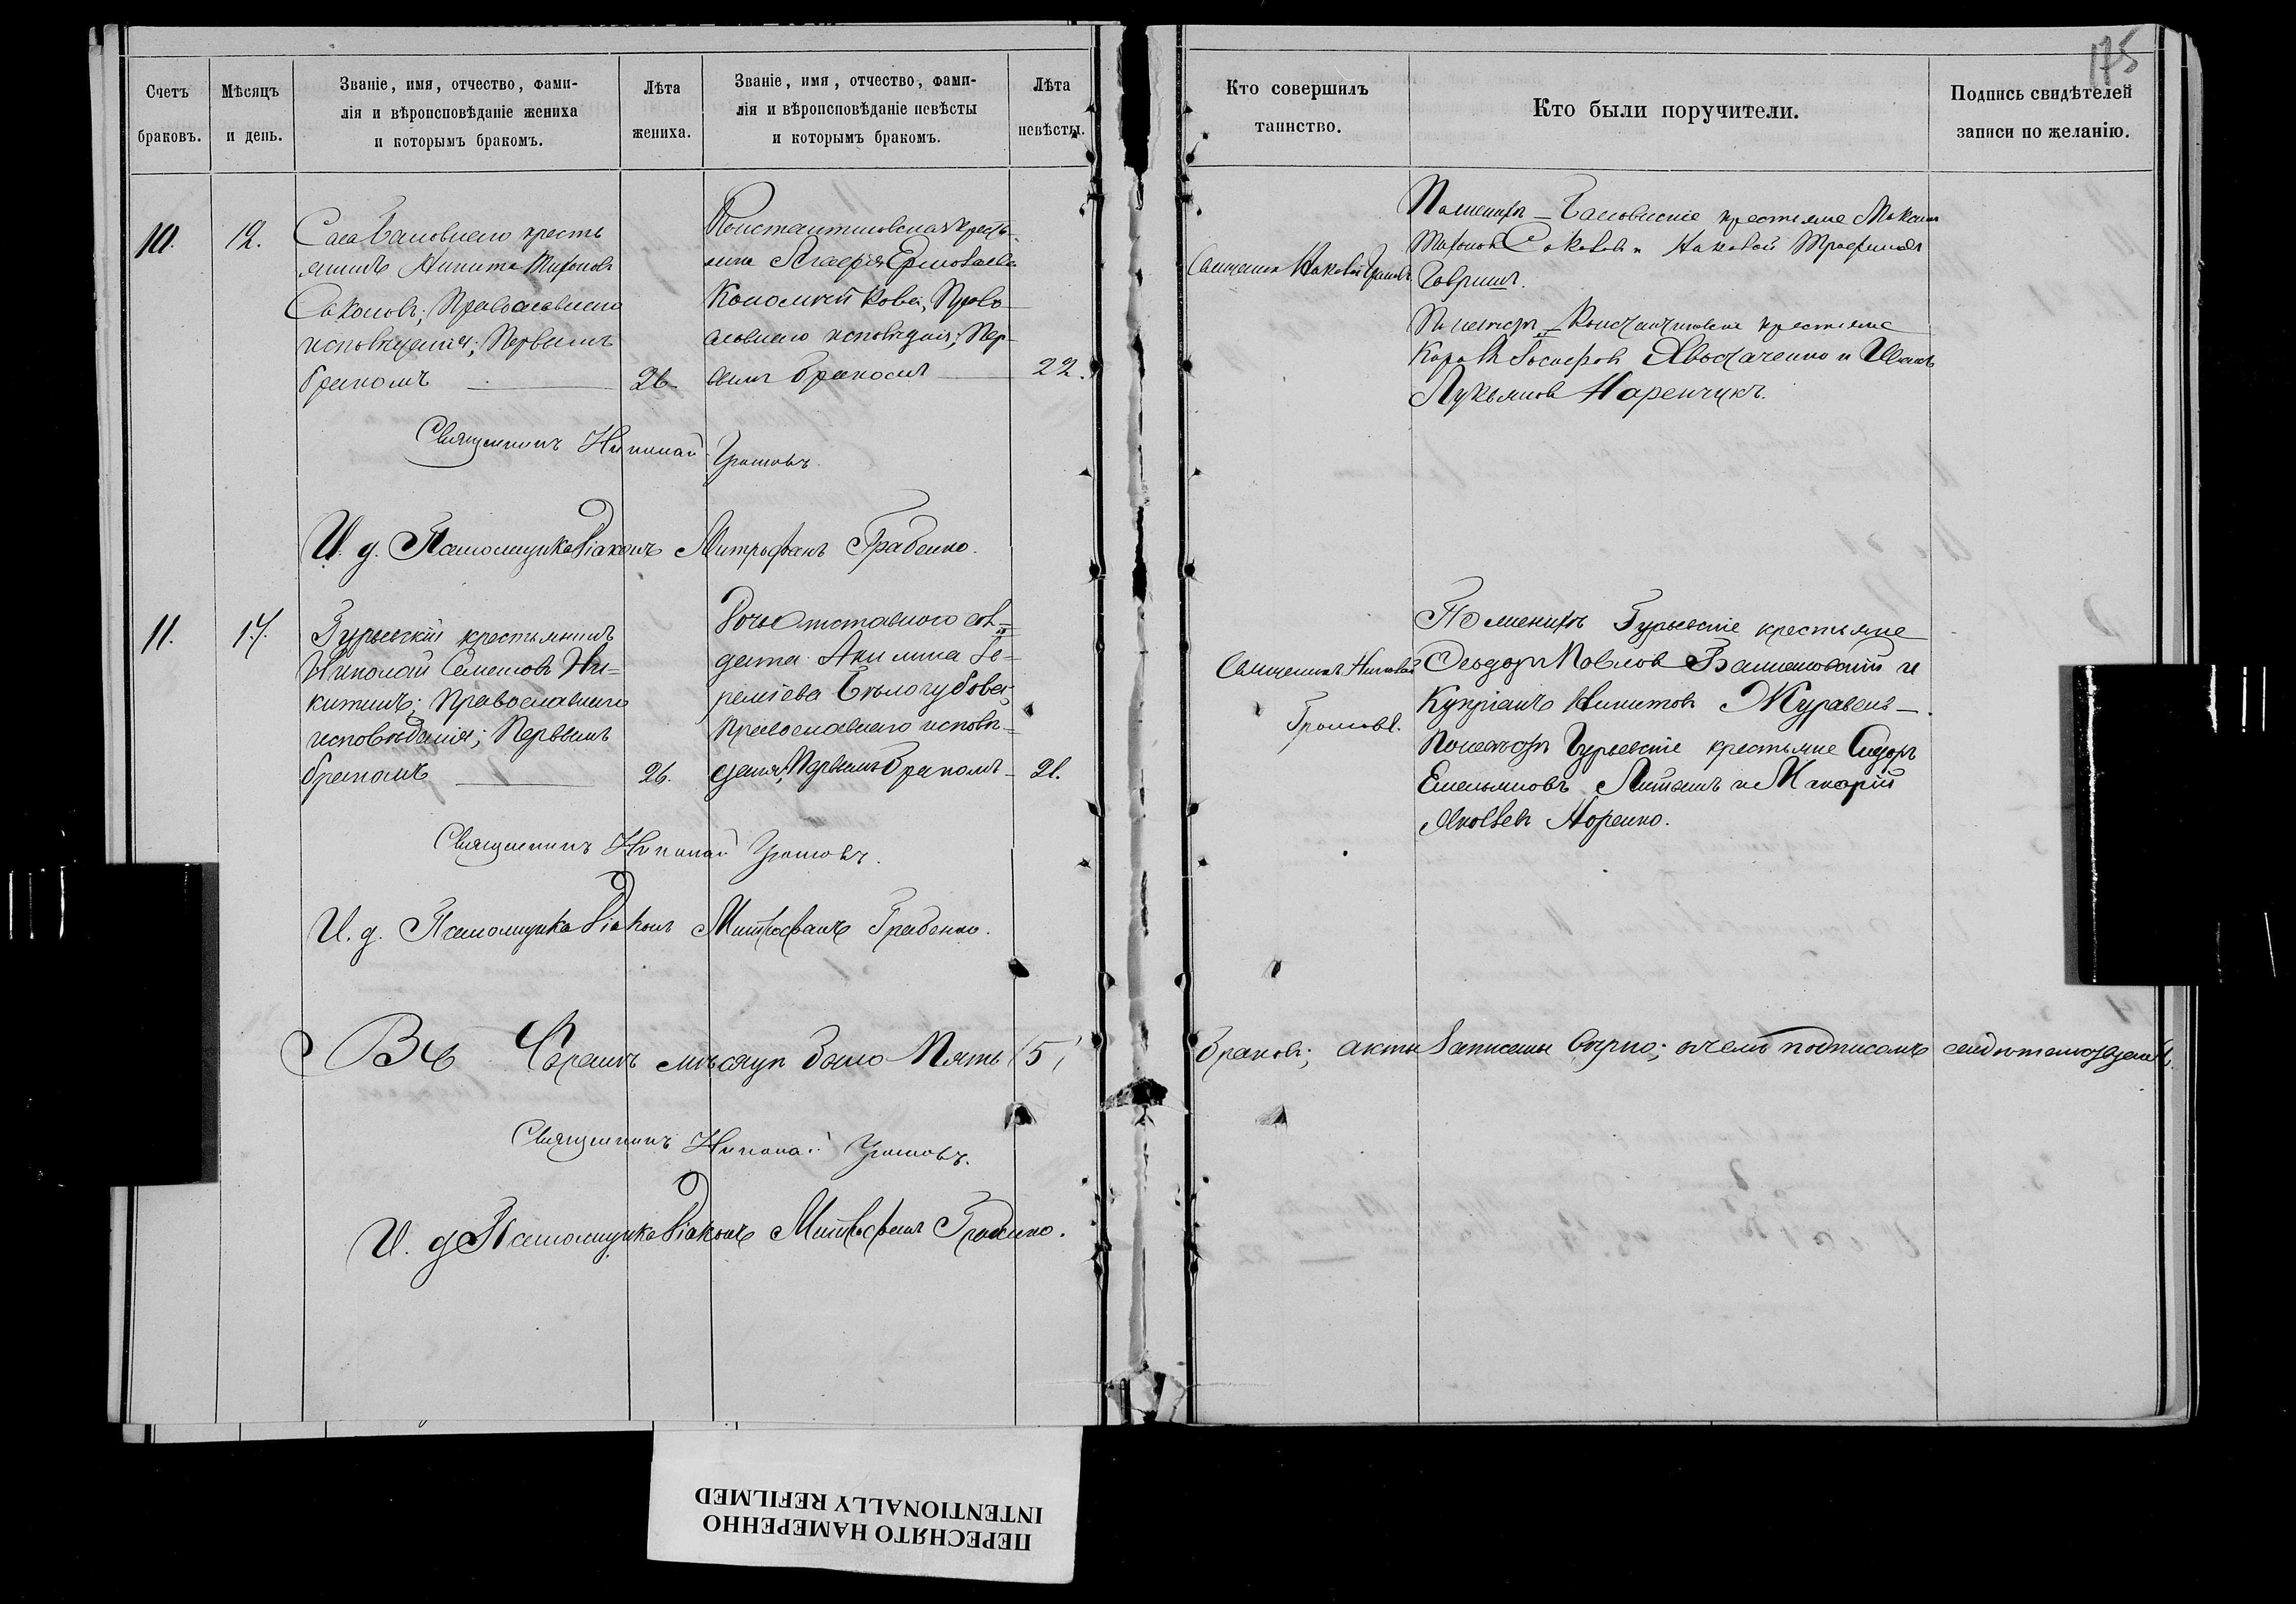 175
Счетъ браковъ.
Мѣсяцъ и день.
Званіе, имя, отчество, фами-
лія и вѣроисповѣданіе жениха
и которымъ бракомъ.
Лѣта жениха.
Званіе, имя, отчество, фами-
лія и вѣроисповѣданіе невѣсты
и которымъ бракомъ.
Лѣта невѣсты.
Кто совершилъ
таинство.
Кто были поручители.
Подпись свидѣтелей
записи по желанію.
10.
12.
Села кресть
янинъ Никита Тихоновъ
Соколовъ; Православнаго
исповѣданія; Первымъ
бракомъ
26.
Константиновская крестьян
Право
славнаго исповѣданія; Пер-
вымъ бракомъ
22.
Священникъ Николай Громовъ
По женихѣ крестьяне Максим
Тихонов Соколовъ и Николай
По невѣстѣ Константиновскіе крестьяне
и Иванъ
Лукьяновъ
Священникъ Николай Громовъ.
И. д. Псаломщика Діаконъ Митрофанъ Грабенко.
11.
17.
Гурьевскій крестьянинъ
Николай Семеновъ Ни-
китинъ; Православнаго
исповѣданія; Первымъ
бракомъ
26.
Дочь Отставного сол-
дата Акилина Те-
рентіева Бѣлогубова;
Православнаго исповѣ-
данія; Первымъ бракомъ
21.
Священникъ Николай
Громовъ.
По женихѣ Гурьевскіе крестьяне
Ѳеодоръ Павловъ и
Купріанъ Никитовъ Журавель
По невѣстѣ Гурьевскіе крестьяне Сидоръ
Емельяновъ и Макарій
Яковлевъ
Священникъ Николай Громовъ.
И. д. Псаломщика Діаконъ Митрофанъ Грабенко.
Въ мѣсяцѣ было Пять (5)
браковъ; акты записаны вѣрно; въ чемъ подписомъ свидѣтельствуемъ.
Священникъ Николай Громовъ.
И. д. Псаломщика Діаконъ Митрофанъ Грабенко.
ПЕРЕСНЯТО НАМЕРЕННО
INTENTIONALLY REFILMED